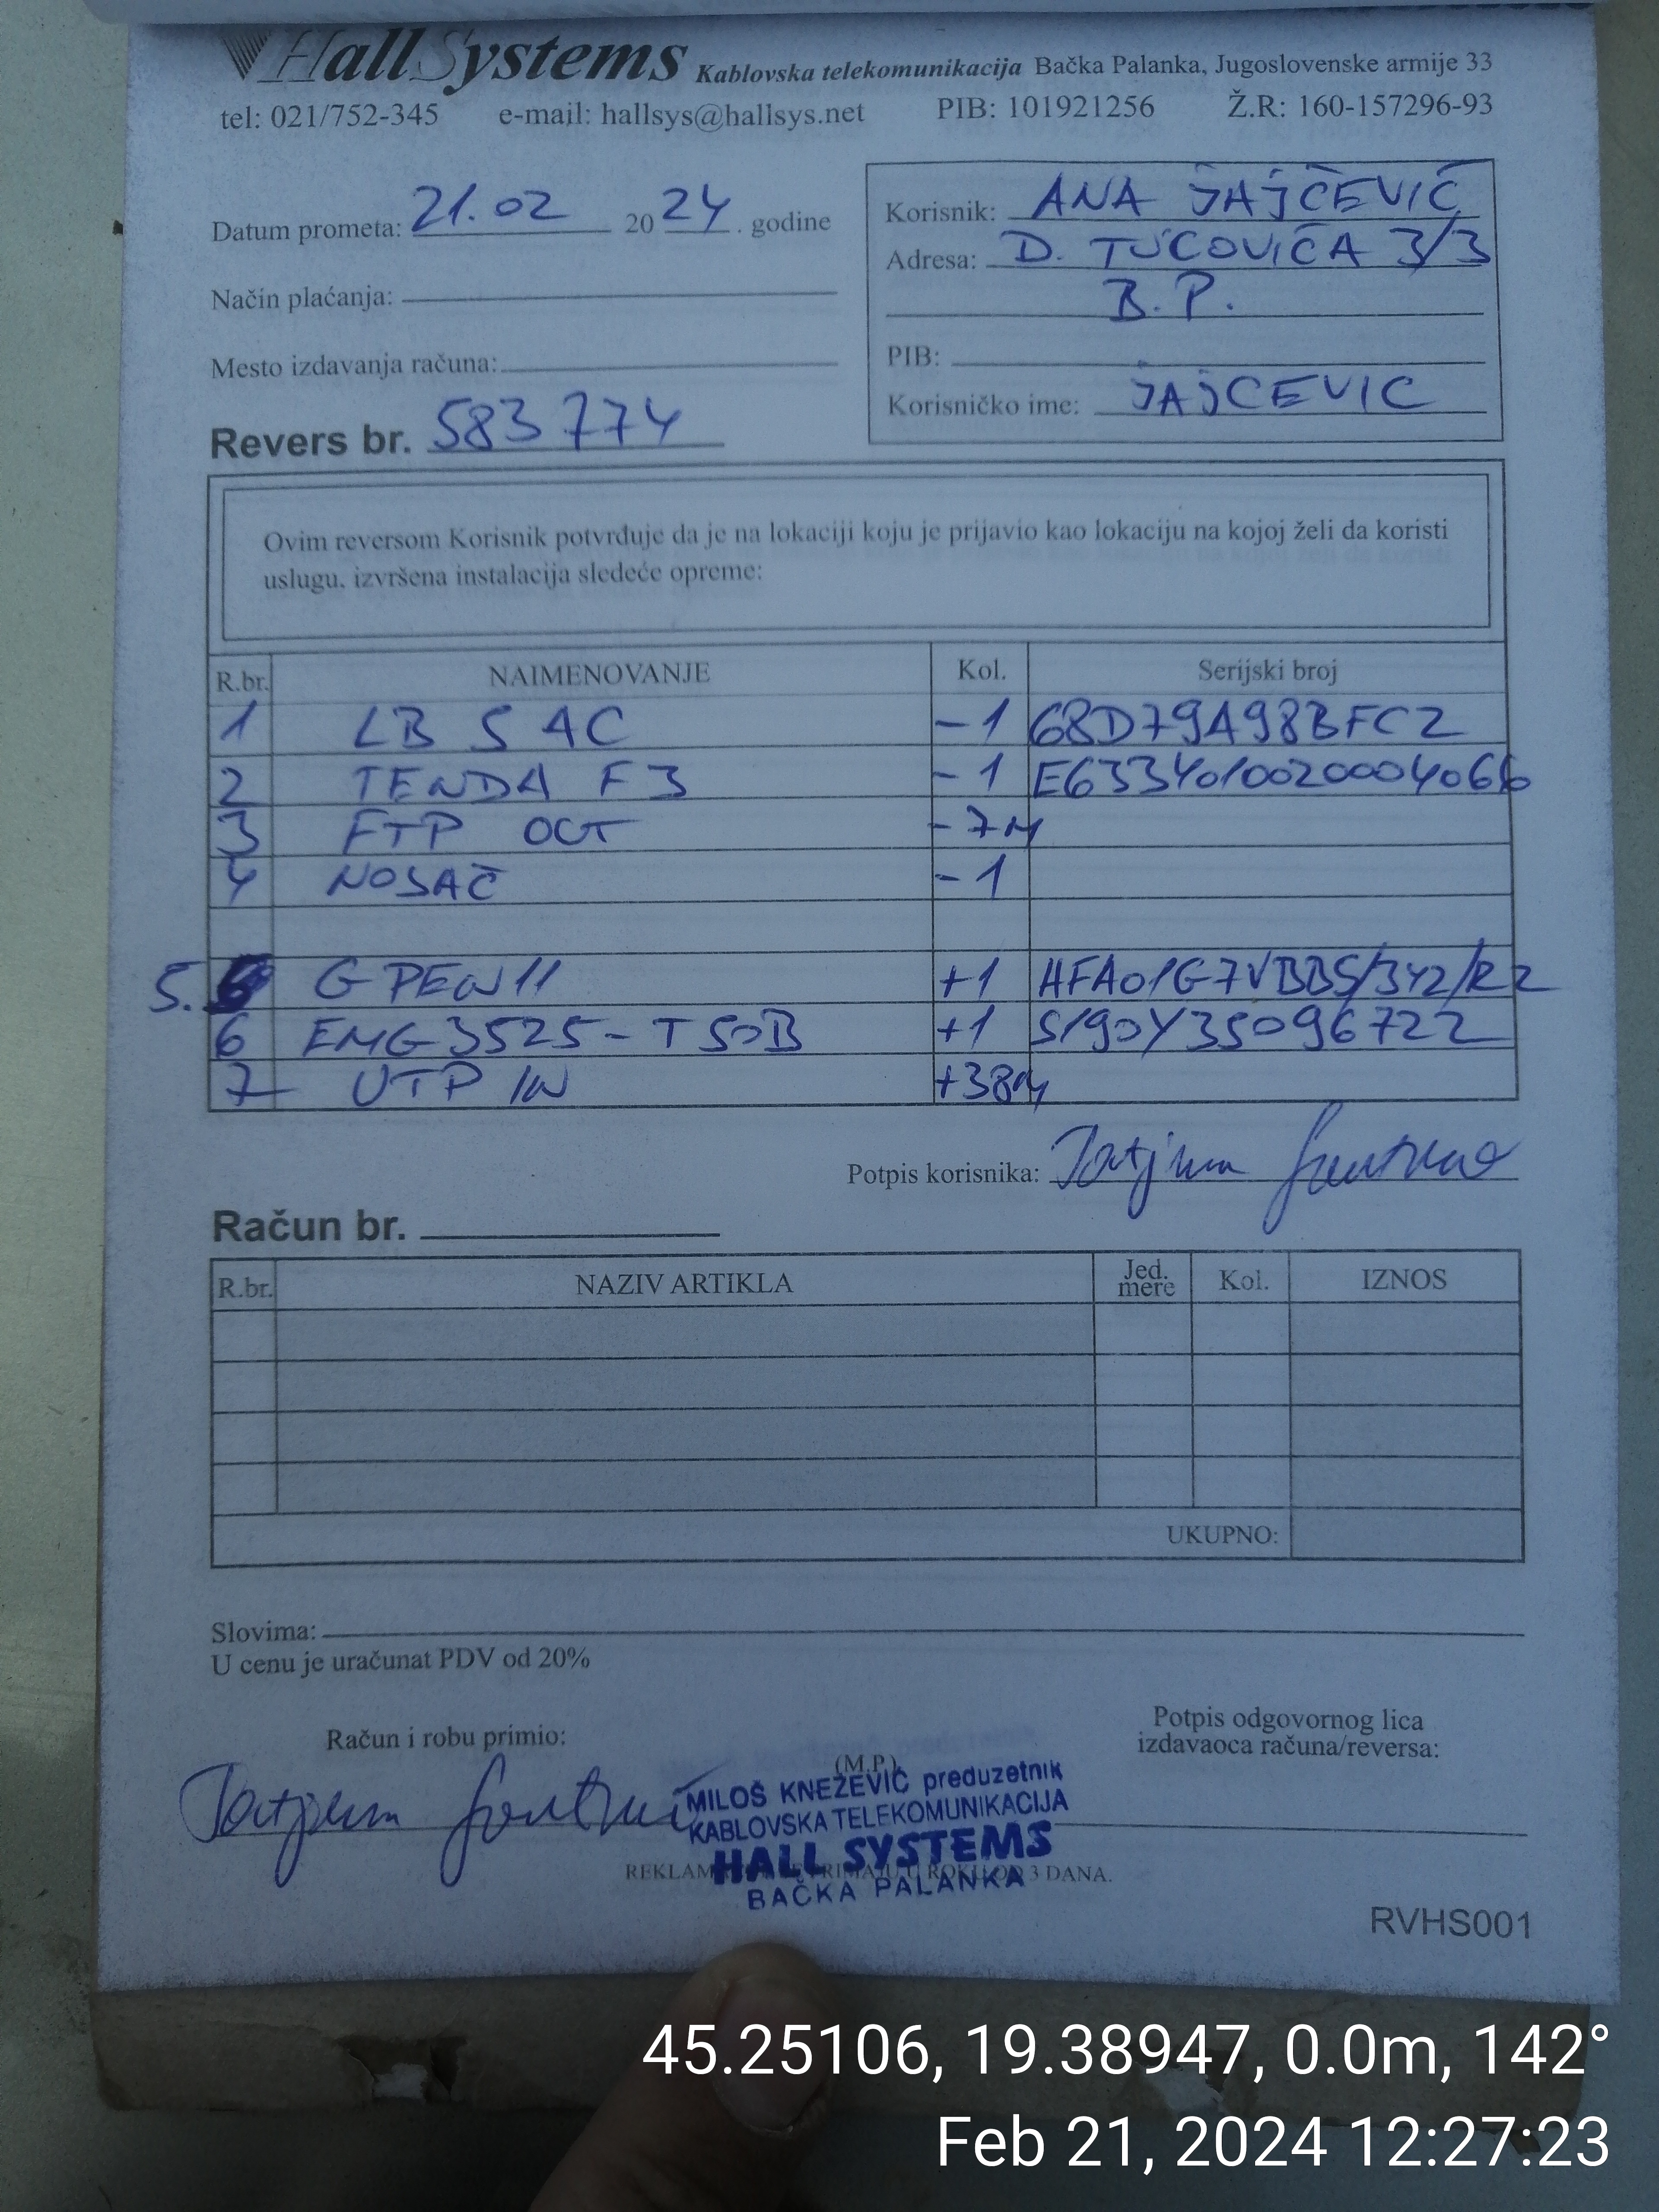 HallSystems Kablovska telekomunikacija Bačka Palanka, Jugoslovenske armije 33
tel: 021/752-345 e-mail: hallsys@hallsys.net PIB: 101921256 Ž.R: 160-157296-93
Datum prometa: 21.02 2024. godine
Način plaćanja:
Mesto izdavanja računa:
Revers br. 583774
Korisnik: ANA JAJČEVIĆ
Adresa: D. TUCOVIĆA 3/3
B.P.
PIB:
Korisničko ime: JAJCEVIC
Ovim reversom Korisnik potvrđuje da je na lokaciji koju je prijavio kao lokaciju na kojoj želi da koristi
uslugu, izvršena instalacija sledeće opreme:
R.br. NAIMENOVANJE Kol. Serijski broj
1 LB 5 AC -1 68D79A98BFC2
2 TENDA F3 -1 E6334010020004066
3 FTP OUT -7M
4 NOSAČ -1
5. G PEW11 +1 HFA01G7VBB5/342/R2
6 EMG3525-T50B +1 S190Y35096722
7 UTP IN +38M
Potpis korisnika: Tatjana
Račun br.
R.br. NAZIV ARTIKLA Jed. mere Kol. IZNOS
UKUPNO:
Slovima:
U cenu je uračunat PDV od 20%
Račun i robu primio:
Tatjana
(M.P.)
Potpis odgovornog lica
izdavaoca računa/reversa:
MILOŠ KNEŽEVIĆ preduzetnik
KABLOVSKA TELEKOMUNIKACIJA
HALL SYSTEMS
BAČKA PALANKA
3 DANA.
RVHS001
45.25106, 19.38947, 0.0m, 142°
Feb 21, 2024 12:27:23